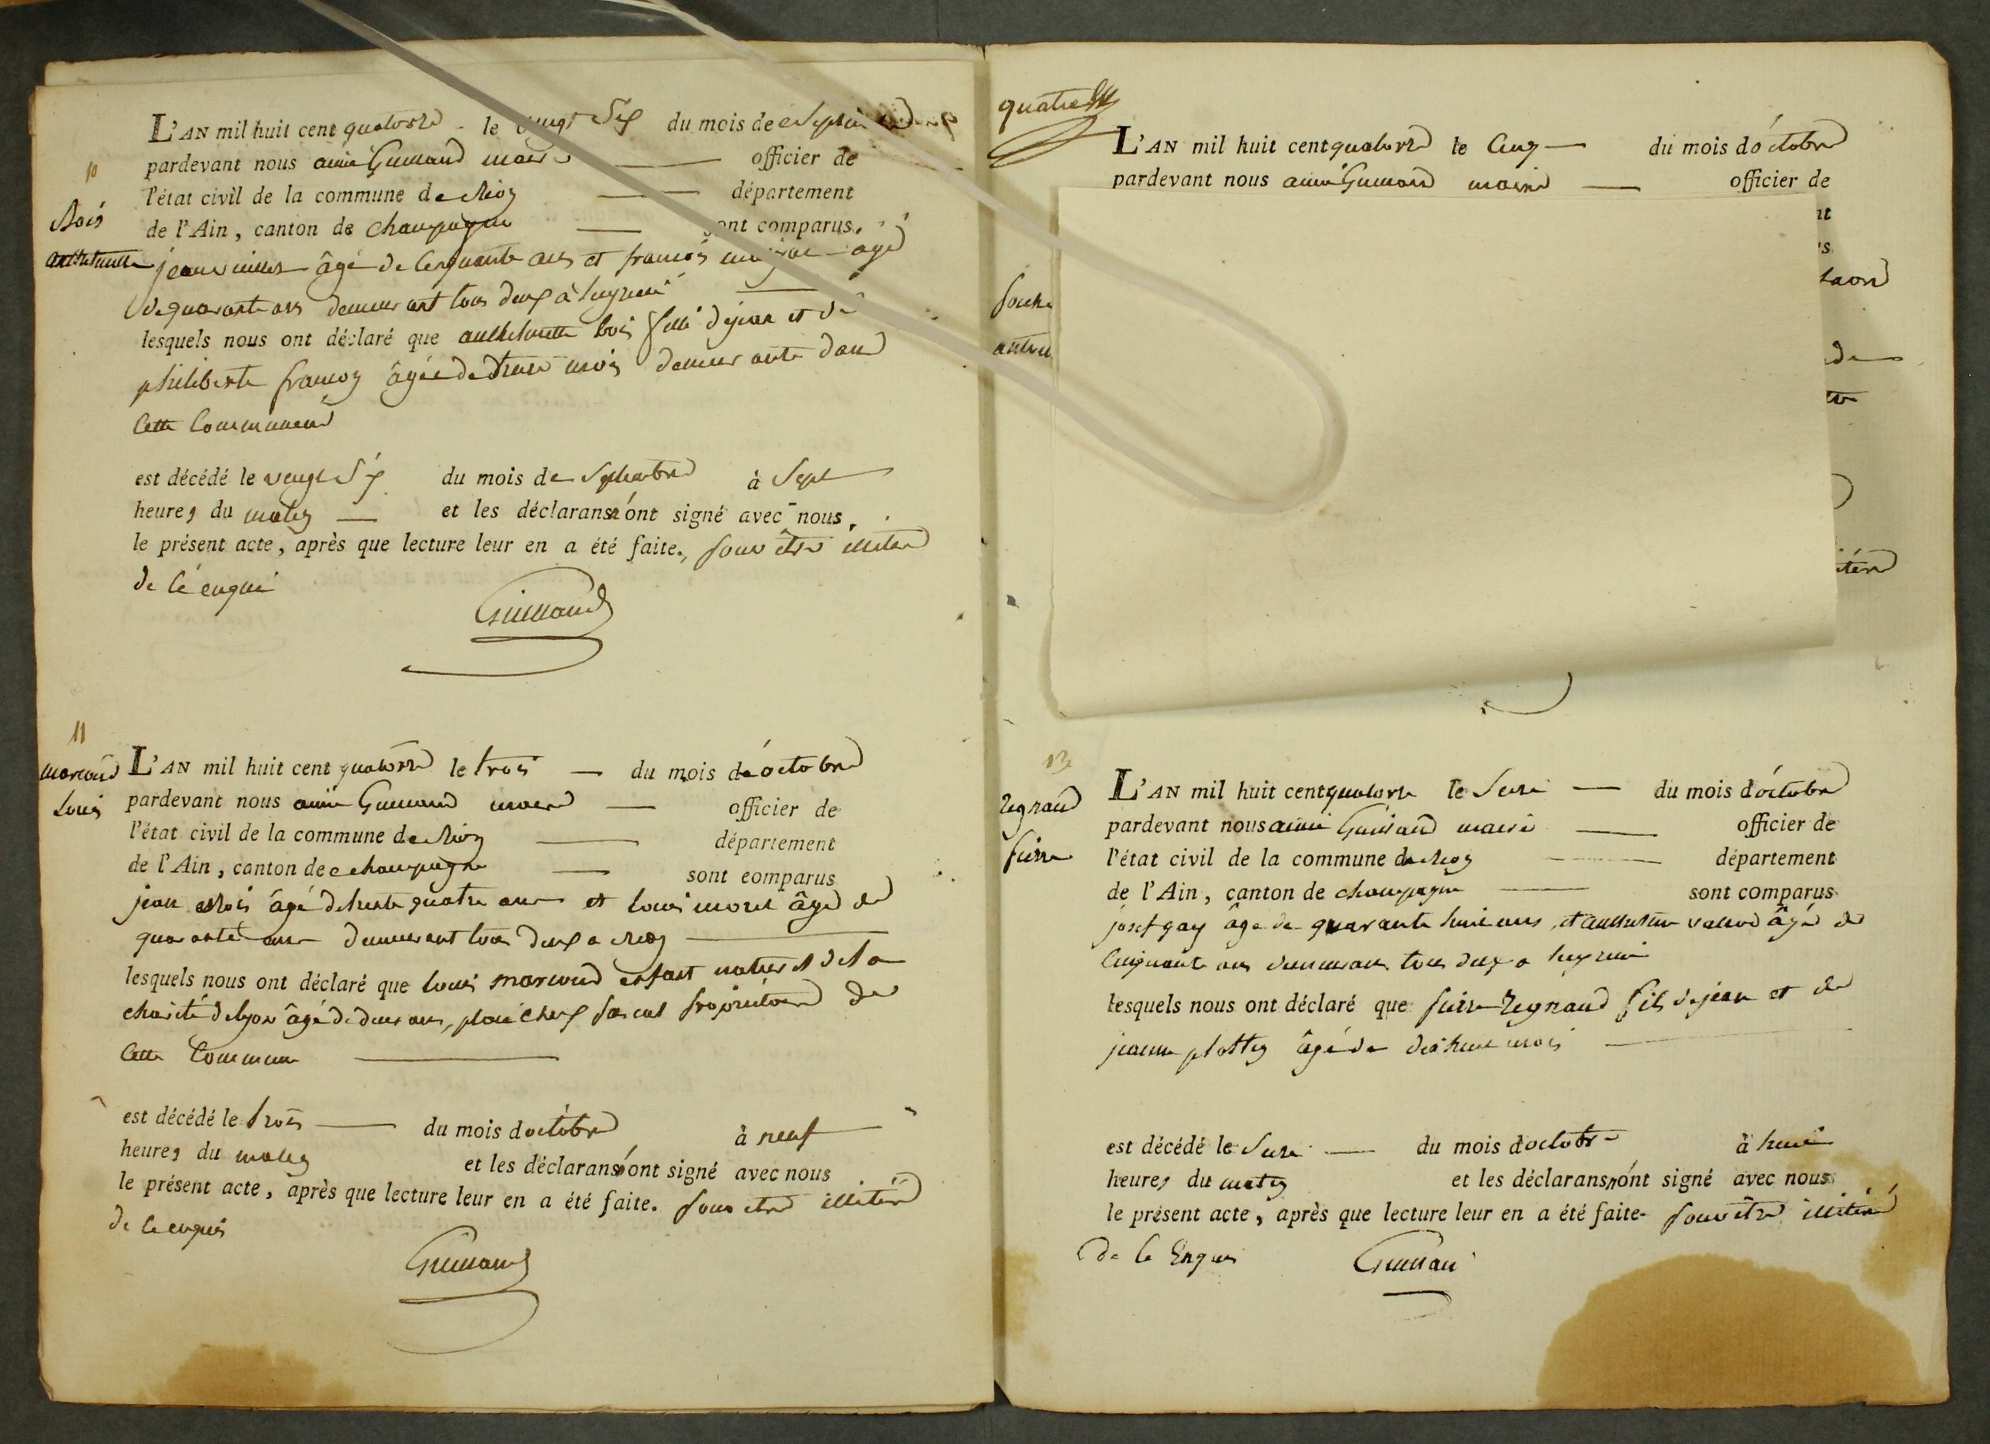 10
Bois
anthelmette
L'AN mil huit cent quatorze le vingt Six du mois de Septembre
pardevant nous aimé Guinand maire officier de
l'état civil de la commune de département
de l'Ain, canton de champagne sont comparus
jean âgé de Cinquante ans et françois âgé
de quarante ans demeurant tous deux à
lesquels nous ont déclaré que anthelmette bois fille de jean et de
philiberte françon âgée de mois demeurante dans
Cette Commune
est décédé le vingt Six du mois de Septembre à Sept
heures du matin et les déclarans n'ont signé avec nous,
le présent acte, après que lecture leur en a été faite, pour être illitéré
de ce enquis
Guinand
11
marcoud
Louis
L'AN mil huit cent quatorze le trois du mois d'octobre
pardevant nous aimé Guinand maire officier de
l'état civil de la commune de département
de l'Ain, canton de champagne sont comparus
jean Bois âgé de trente quatre ans et Louis morel âgé de
quarante ans demeurant tous deux a
lesquels nous ont déclaré que Louis marcoud enfant naturel de la
charité de lyon âgé de deux ans, placé chez propriétaire de
Cette Commune
est décédé le trois du mois d'octobre à neuf
heures du matin et les déclarans n'ont signé avec nous
le présent acte, après que lecture leur en a été faite. pour etre illitéré
de ce enquis
Guinand
quatre
L'AN mil huit cent quatorze le Cinq du mois d'octobre
pardevant nous aimé Guinand maire officier de
13
Regnaud
L'AN mil huit cent quatorze le Seize du mois d'octobre
pardevant nous aimé Guinand maire officier de
l'état civil de la commune de département
de l'Ain, canton de champagne sont comparus
josef gay âgé de quarante huit ans, et anthelme âgé de
Cinquante ans demeurans tous deux a
lesquels nous ont déclaré que Regnaud fils de jean et de
jeanne âgé de dix huit mois
est décédé le Seize du mois d'octobre à huit
heures du matin et les déclarans n'ont signé avec nous
le présent acte, après que lecture leur en a été faite. pour être illitéré
de ce Enquis
Guinand